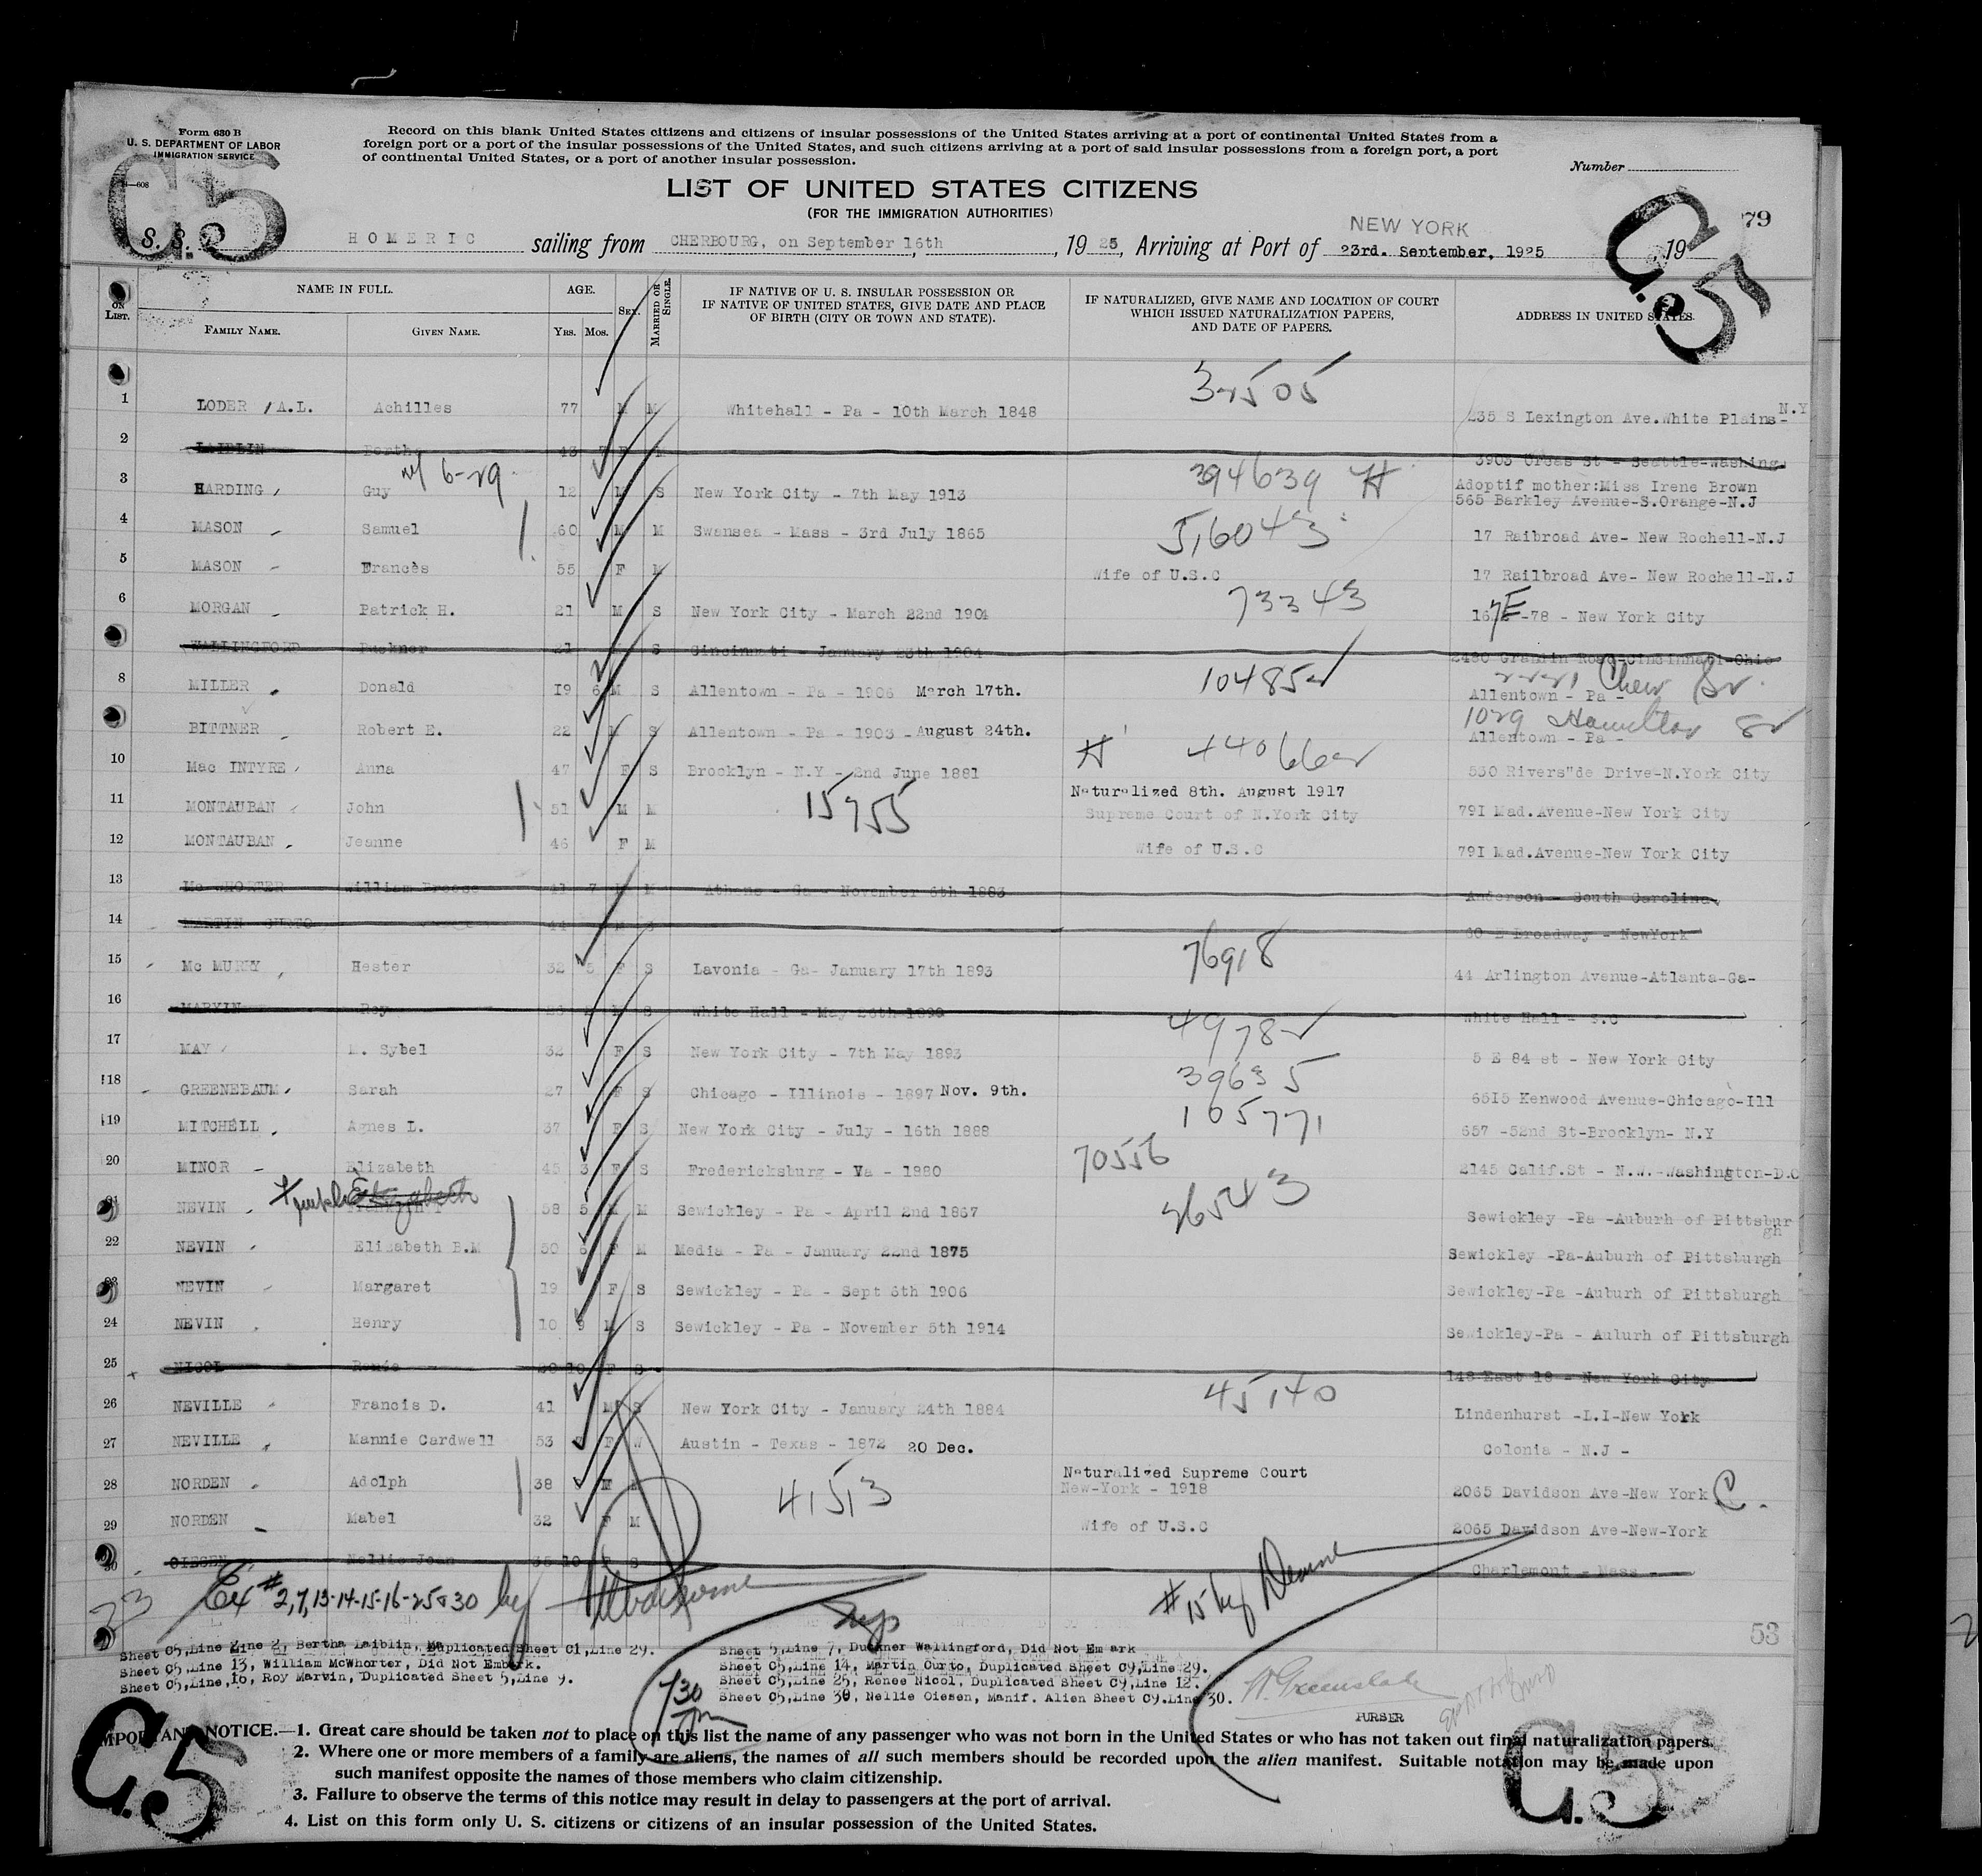 Form 630 B
U. S. DEPARTMENT OF LABOR
IMMIGRATION SERVICE
Record on this blank United States citizens and citizens of insular possessions of the United States arriving at a port of continental United States from a
foreign port or a port of the insular possessions of the United States, and such citizens arriving at a port of said insular possessions from a foreign port, a port
of continental United States, or a port of another insular possession.
Number
C.5
C.5
79
LIST OF UNITED STATES CITIZENS
(FOR THE IMMIGRATION AUTHORITIES)
NEW YORK
S. S. HOMERIC sailing from CHERBOURG, on September 16th, 1925, Arriving at Port of 23rd. September, 1925, 19
ON LIST. NAME IN FULL. AGE. SEX. MARRIED OR SINGLE. IF NATIVE OF U. S. INSULAR POSSESSION OR IF NATIVE OF UNITED STATES, GIVE DATE AND PLACE OF BIRTH (CITY OR TOWN AND STATE). IF NATURALIZED, GIVE NAME AND LOCATION OF COURT WHICH ISSUED NATURALIZATION PAPERS, AND DATE OF PAPERS. ADDRESS IN UNITED STATES.
FAMILY NAME. GIVEN NAME. YRS. MOS.
1 LODER / A.L. Achilles 77 M M Whitehall - Pa - 10th March 1848 235 S Lexington Ave.White Plains- N.Y
2 LAIBLIN 43 3903 Orcas St - Seattle-Washing
3 HARDING Guy 12 M S New York City - 7th May 1913 394639 Adoptif mother:Miss Irene Brown
565 Barkley Avenue-S.Orange-N.J
4 MASON Samuel 60 M M Swansea - Mass - 3rd July 1865 516043 17 Raibroad Ave- New Rochell-N.J
5 MASON Francès 55 F M Wife of U.S.C 17 Railbroad Ave- New Rochell-N.J
6 MORGAN Patrick H. 21 M S New York City - March 22nd 1904 73343 -78 - New York City
WALLINGFORD Duckner 21 S Cincinnati - January 1904 2480 Grandin Road-Cincinnati-Ohio
8 MILLER Donald 19 6 M S Allentown - Pa - 1906 March 17th. Chew
Allentown - Pa -
BITTNER Robert E. 22 M S Allentown - Pa - 1903 - August 24th. 1029 Hamilton
Allentown - Pa -
10 Mac INTYRE Anna 47 F S Brooklyn - N.Y - 2nd June 1881 530 Rivers"de Drive-N.York City
11 MONTAUBAN John 51 M M 15755 Naturalized 8th. August 1917
Supreme Court of N.York City 791 Mad.Avenue-New York City
12 MONTAUBAN Jeanne 46 F M Wife of U.S.C 791 Mad.Avenue-New York City
13 Mc WHORTER William 41 7 M M Athens - Ga - November 6th 1883 Anderson - South Carolina
14 MARTIN CURTO 44 M 60 E Broadway - NewYork
15 Mc MURRY Hester 32 5 F S Lavonia - Ga- January 17th 1893 76918 44 Arlington Avenue-Atlanta-Ga-
16 MARVIN Roy S White Hall - May White Hall - S.C
17 MAY Sybel 32 F S New York City - 7th May 1893 5 E 84 st - New York City
18 GREENEBAUM Sarah 27 F S Chicago - Illinois - 1897 Nov. 9th. 39635 6515 Kenwood Avenue-Chicago-Ill
19 MITCHELL Agnes L. 37 F S New York City - July - 16th 1888 105771 657 -52nd St-Brooklyn- N.Y
20 MINOR Elizabeth 45 3 F S Fredericksburg - Va - 1880 70556 2145 Calif.St - N.W.-Washington-D.C
NEVIN 58 5 M M Sewickley - Pa - April 2nd 1867 26543 Sewickley -Pa -Auburh of Pittsbur
gh
22 NEVIN Elisabeth B.M 50 8 F M Media - Pa - January 22nd 1875 Sewickley -Pa-Auburh of Pittsburgh
NEVIN Margaret 19 F S Sewickley - Pa - Sept 6th 1906 Sewickley-Pa -Auburh of Pittsburgh
24 NEVIN Henry 10 9 M S Sewickley - Pa - November 5th 1914 Sewickley-Pa - Aulurh of Pittsburgh
25 NICOL Renée 10 F S 148 East 18 - New York City
26 NEVILLE Francis D. 41 M S New York City - January 24th 1884 45140 Lindenhurst -L.I-New York
27 NEVILLE Mannie Cardwell 53 F W Austin - Texas - 1872 20 Dec. Colonia - N.J -
28 NORDEN Adolph 38 M M 41513 Naturalized Supreme Court
New-York - 1918 2065 Davidson Ave-New York
29 NORDEN Mabel 32 F M Wife of U.S.C 2065 Davidson Ave-New-York
30 OIESEN Nellie Joan 10 F S Charlemont - Mass -
Ex # 2,7,13-14-15-16-25&30 by
# 15 by
53
Sheet C5,Line 2, Bertha Laiblin, Duplicated Sheet C1,Line 29.
Sheet 5,Line 7, Duckner Wallingford, Did Not Em ark
Sheet C5,Line 13, William McWhorter, Did Not Embark.
Sheet C5,Line 14, Martin Curto, Duplicated Sheet C9,Line 29.
Sheet C5,Line,16, Roy Marvin, Duplicated Sheet 5,Line 9.
Sheet C5,Line 25, Renee Nicol, Duplicated Sheet C9,Line 12.
Sheet C5,Line 30, Nellie Oiesen, Manif. Alien Sheet C9.Line 30.
730 pm
PURSER
C.5
C.5
IMPORTANT NOTICE.—1. Great care should be taken not to place on this list the name of any passenger who was not born in the United States or who has not taken out final naturalization papers.
2. Where one or more members of a family are aliens, the names of all such members should be recorded upon the alien manifest. Suitable notation may be made upon
such manifest opposite the names of those members who claim citizenship.
3. Failure to observe the terms of this notice may result in delay to passengers at the port of arrival.
4. List on this form only U. S. citizens or citizens of an insular possession of the United States.